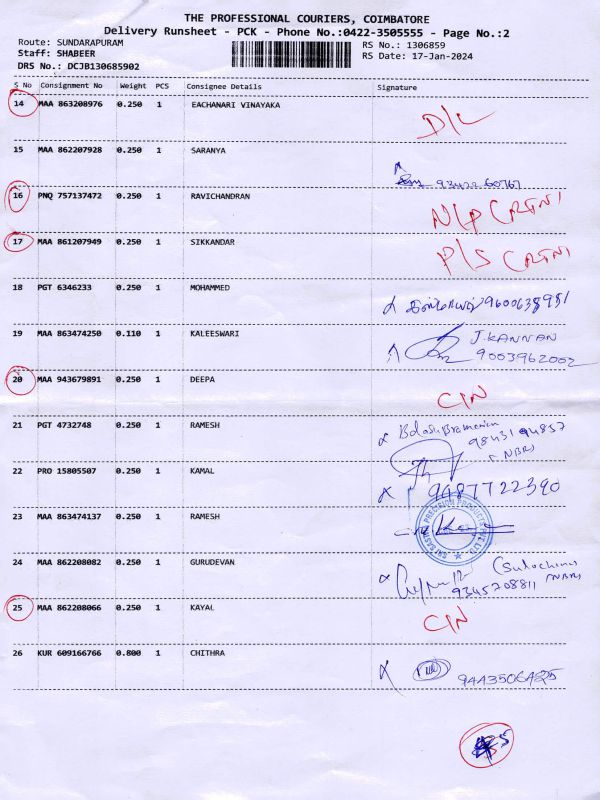 THE PROFESSIONAL COURIERS, COIMBATORE
Delivery Runsheet - PCK - Phone No.:0422-3505555 - Page No.:2
Route: SUNDARAPURAM
RS No.: 1306859
Staff: SHABEER
RS Date: 17-Jan-2024
DRS No.: DCJB130685902
S No Consignment No Weight PCS Consignee Details Signature
14 MAA 863208976 0.250 1 EACHANARI VINAYAKA D/L
15 MAA 862207928 0.250 1 SARANYA
16 PNQ 757137472 0.250 1 RAVICHANDRAN
17 MAA 861207949 0.250 1 SIKKANDAR
18 PGT 6346233 0.250 1 MOHAMMED 9600638981
19 MAA 863474250 0.110 1 KALEESWARI J.KANNAN
9003962002
20 MAA 943679891 0.250 1 DEEPA CIN
21 PGT 4732748 0.250 1 RAMESH
9843194857
NBR
22 PRO 15805507 0.250 1 KAMAL 9487722390
23 MAA 863474137 0.250 1 RAMESH
24 MAA 862208082 0.250 1 GURUDEVAN
9345708811 NBR
25 MAA 862208066 0.250 1 KAYAL CIN
26 KUR 609166766 0.800 1 CHITHRA 9443506425